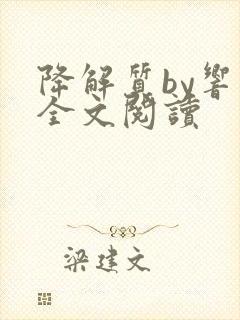 降解質by響
全文閱讀
梁建文